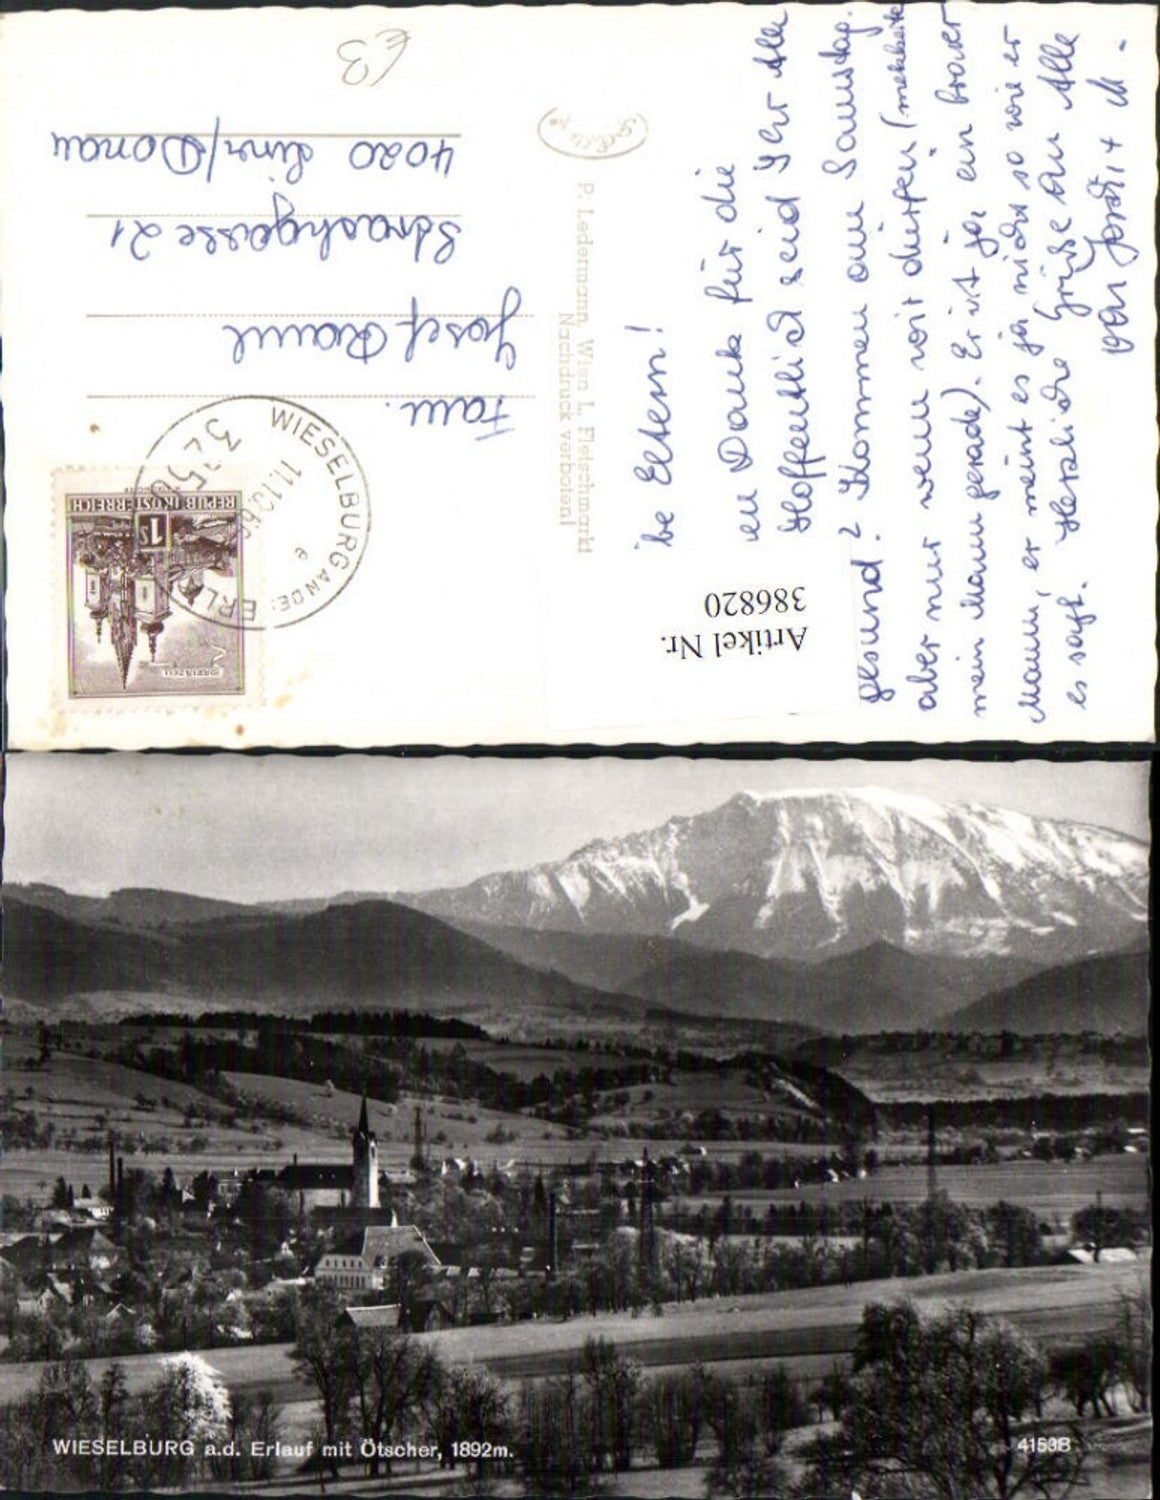 €3
Fam.
Josef
21
4020 Linz/Donau
P. Ledermann, Wien I., Fleischmarkt
Nachdruck verboten!
WIESELBURG AN DER ERLAUF
11.10.66
e
REPUBLIK ÖSTERREICH
1 S
MARIAZELL
Artikel Nr.
386820
be Eltern!
en Dank für die
Hoffentlich seid Ihr Alle
gesund? Kommen am Samstag.
aber nur wenn wir dürfen
mein Mann gerade). Er ist ja ein braver
Mann, er meint es ja nicht so wie er
es sagt. Herzliche Grüße an Alle
von + M.
WIESELBURG a.d. Erlauf mit Ötscher, 1892m.
4153B